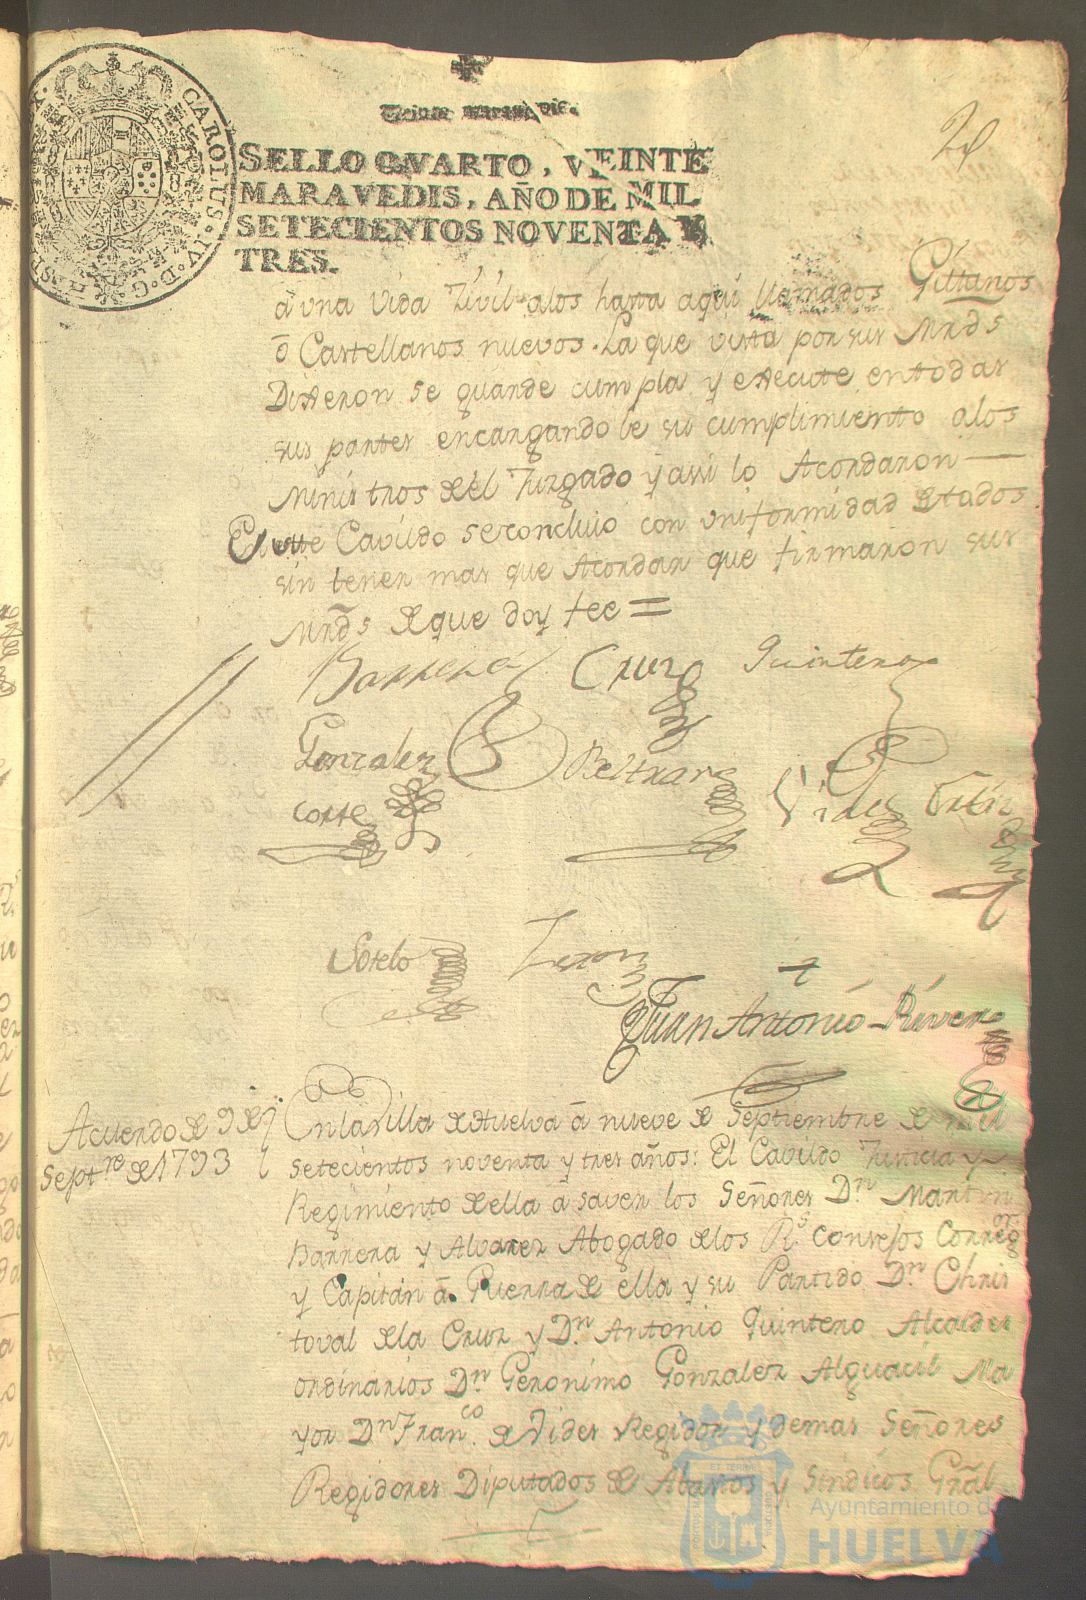 CAROLUS IV D G HISP
Veinte maravedis.
SELLO QVARTO, VEINTE
MARAVEDIS, AÑO DE MIL
SETECIENTOS NOVENTA Y
TRES.
á vna vida Zivil alos hasta aqui llamados Gittanos
ó Castellanos nuevos. La que vista por sus Mrds
Dixeron se guarde cumpla y execute entodas
sus partes encargandole su cumplimiento alos
Ministros del Juzgado y assi lo Acordaron
En este Cavildo se concluio con vniformidad de todos
sin tener mas que Acordar que firmaron sus
Mrds de que doy fee =
Barrera Cruz Quintero
Gonzalez Beltran
Corte Vides Ortiz
Sotelo
Juan Antonio Rivero
Acuerdo de 9 de
Septre de 1793
En la villa de Huelva á nueve de Septiembre de mil
setecientos noventa y tres años: El Cavildo Justicia y
Regimiento de ella á saver los Señores Dn Martin
Barrera y Alvarez Abogado de los Rs. Consejos Corregor
y Capitán á Guerra de ella y su Partido Dn Chris
toval de la Cruz y Dn Antonio Quintero Alcaldes
ordinarios Dn Geronimo Gonzalez Alguacil Ma
yor Dn Franco. de Vides Regidor y demas Señores
Regidores Diputados de Abastos y Sindicos Gral
Ayuntamiento de
HUELVA